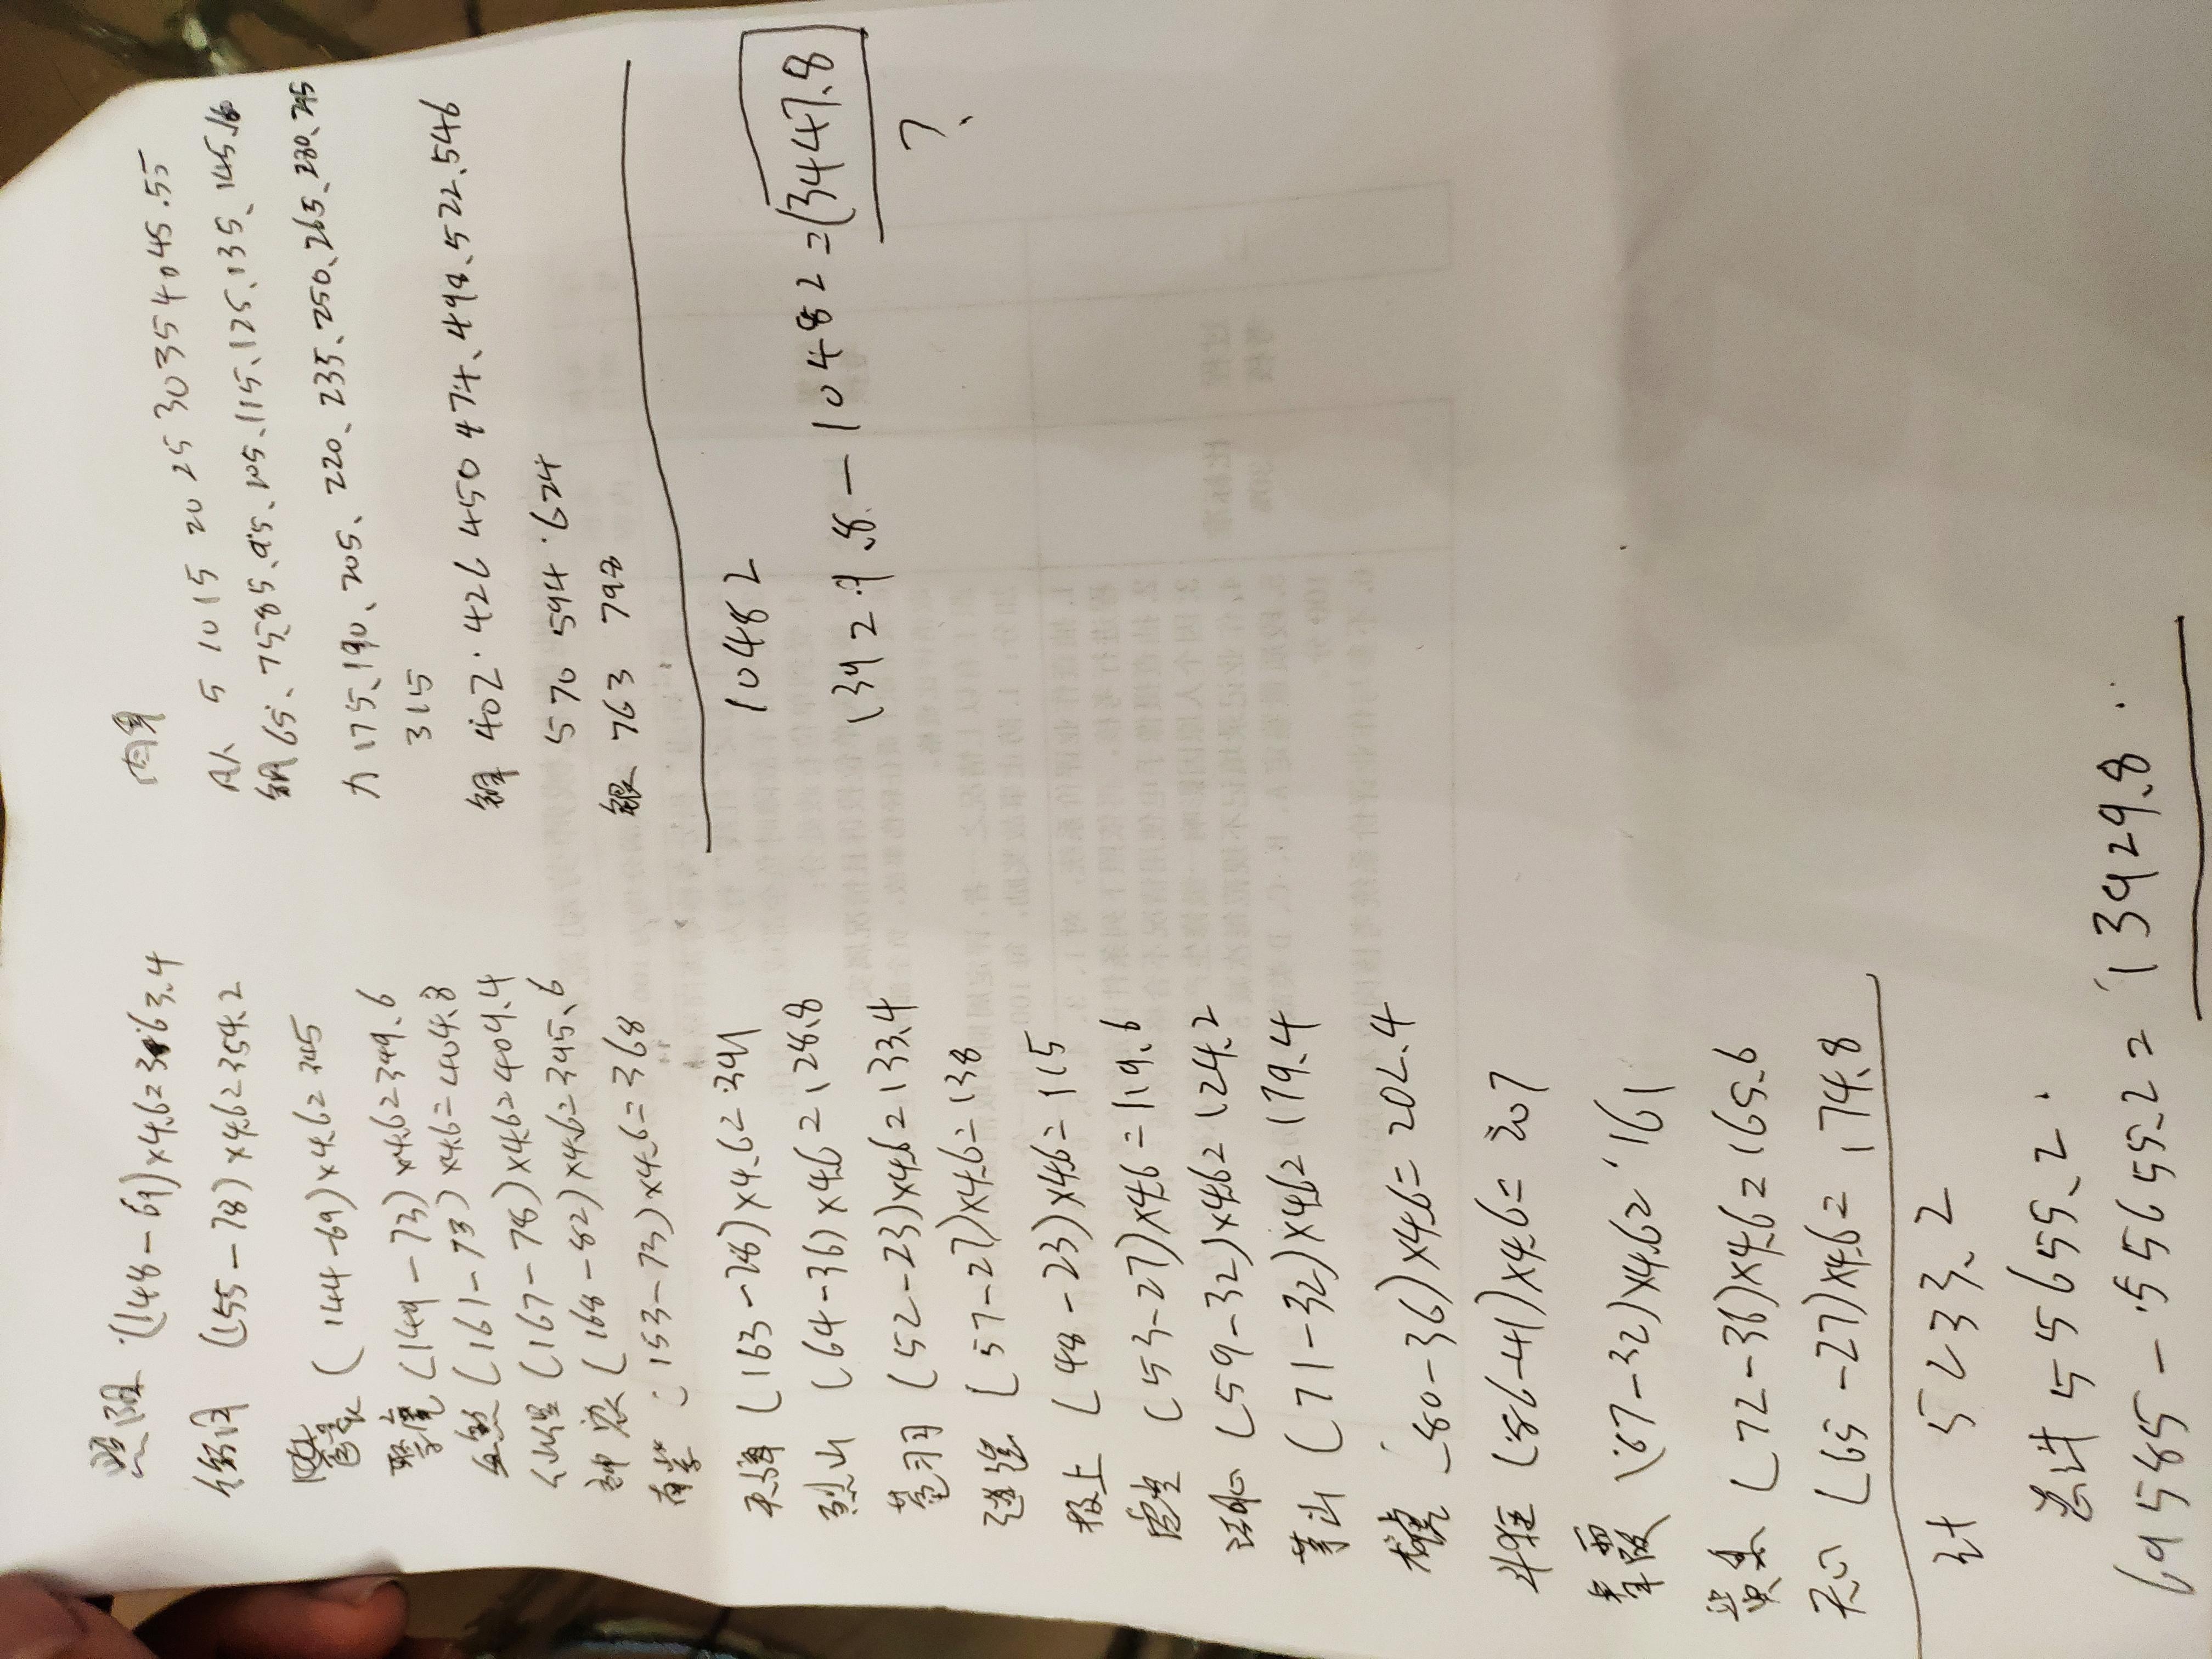 昭阳 (148-69)×4.6=363.4
(155-78)×4.6=354.2
(144-69)×4.6=345
(149-73)×4.6=349.6
(161-73)×4.6=404.8
(167-78)×4.6=409.4
神农(168-82)×4.6=395.6
南掌(153-73)×4.6=368
天璇(163-78)×4.6=391
烈山(64-36)×4.6=128.8
苞羽(52-23)×4.6=133.4
(57-27)×4.6=138
极上(48-23)×4.6=115
(53-27)×4.6=119.6
(59-32)×4.6=124.2
茅山(71-32)×4.6=179.4
(80-36)×4.6=202.4
(86-41)×4.6=207
青霞(67-32)×4.6=161
(72-36)×4.6=165.6
天心(65-27)×4.6=174.8
计 5233.2
总计 55655.2.
69585-55655.2=13929.8
内身
5 10 15 20 25 30 35 40 45.55
铜 65、75、85、95、105、115、125、135、145、16
力 175、190、205、220、235、250、265、280、295
315
402.426 450 474、498、522、546
570 594.624
银 763 798
10482
13929.8-10482=(3447.8
?